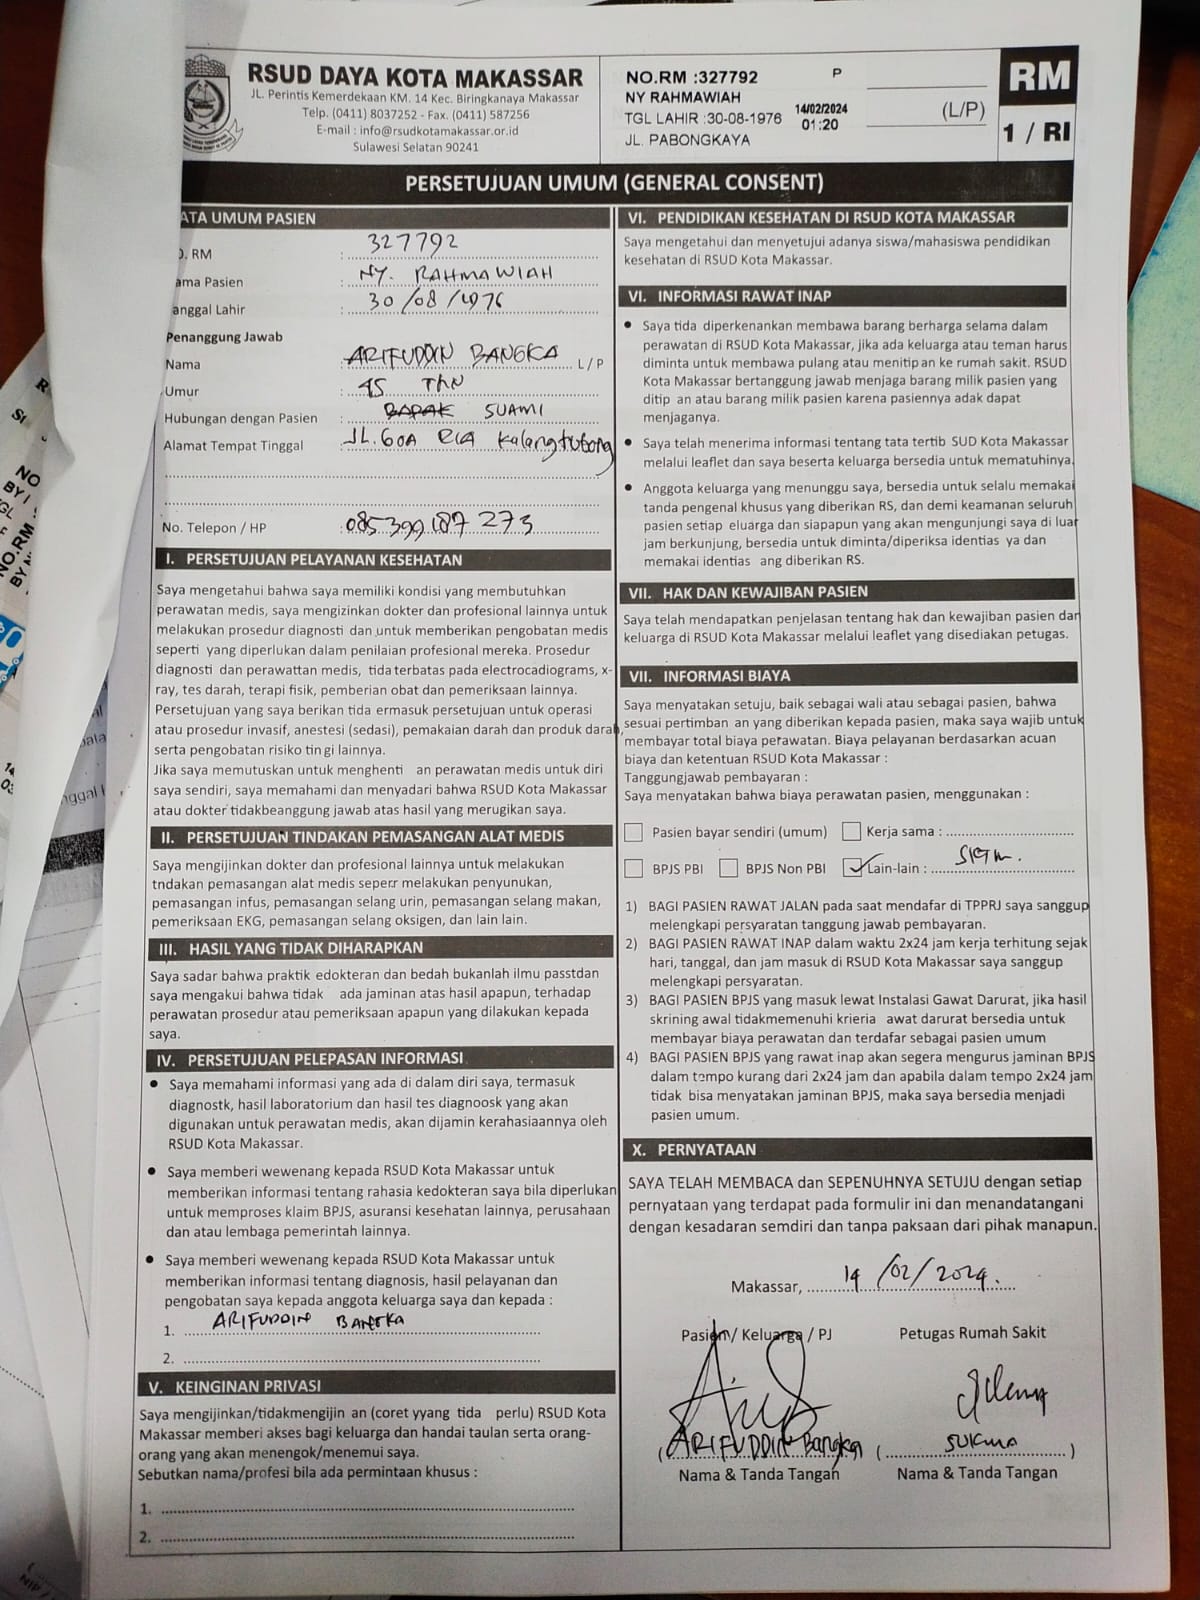 RSUD DAYA KOTA MAKASSAR
JL. Perintis Kemerdekaan KM. 14 Kec. Biringkanaya Makassar
Telp. (0411) 8037252 - Fax. (0411) 587256
E-mail : info@rsudkotamakassar.or.id
Sulawesi Selatan 90241
NO.RM :327792 P
NY RAHMAWIAH
TGL LAHIR :30-08-1976
JL. PABONGKAYA
14/02/2024
01:20
(L/P)
RM
1 / RI
PERSETUJUAN UMUM (GENERAL CONSENT)
ATA UMUM PASIEN
O. RM : 327792
ama Pasien : NY. RAHMAWIAH
anggal Lahir : 30/08/1976
Penanggung Jawab
Nama : ARIFUDDIN BANGKA L/P
Umur : 45 THN
Hubungan dengan Pasien : BAPAK SUAMI
Alamat Tempat Tinggal : JL. GOA RIA Kalangtubong
No. Telepon / HP : 085399187273
I. PERSETUJUAN PELAYANAN KESEHATAN
Saya mengetahui bahwa saya memiliki kondisi yang membutuhkan
perawatan medis, saya mengizinkan dokter dan profesional lainnya untuk
melakukan prosedur diagnosti dan untuk memberikan pengobatan medis
seperti yang diperlukan dalam penilaian profesional mereka. Prosedur
diagnosti dan perawattan medis, tida terbatas pada electrocadiograms, x-
ray, tes darah, terapi fisik, pemberian obat dan pemeriksaan lainnya.
Persetujuan yang saya berikan tida ermasuk persetujuan untuk operasi
atau prosedur invasif, anestesi (sedasi), pemakaian darah dan produk darah,
serta pengobatan risiko tin gi lainnya.
Jika saya memutuskan untuk menghenti an perawatan medis untuk diri
saya sendiri, saya memahami dan menyadari bahwa RSUD Kota Makassar
atau dokter tidakbeanggung jawab atas hasil yang merugikan saya.
II. PERSETUJUAN TINDAKAN PEMASANGAN ALAT MEDIS
Saya mengijinkan dokter dan profesional lainnya untuk melakukan
tndakan pemasangan alat medis seperr melakukan penyunukan,
pemasangan infus, pemasangan selang urin, pemasangan selang makan,
pemeriksaan EKG, pemasangan selang oksigen, dan lain lain.
III. HASIL YANG TIDAK DIHARAPKAN
Saya sadar bahwa praktik edokteran dan bedah bukanlah ilmu passtdan
saya mengakui bahwa tidak ada jaminan atas hasil apapun, terhadap
perawatan prosedur atau pemeriksaan apapun yang dilakukan kepada
saya.
IV. PERSETUJUAN PELEPASAN INFORMASI
• Saya memahami informasi yang ada di dalam diri saya, termasuk
diagnostk, hasil laboratorium dan hasil tes diagnoosk yang akan
digunakan untuk perawatan medis, akan dijamin kerahasiaannya oleh
RSUD Kota Makassar.
• Saya memberi wewenang kepada RSUD Kota Makassar untuk
memberikan informasi tentang rahasia kedokteran saya bila diperlukan
untuk memproses klaim BPJS, asuransi kesehatan lainnya, perusahaan
dan atau lembaga pemerintah lainnya.
• Saya memberi wewenang kepada RSUD Kota Makassar untuk
memberikan informasi tentang diagnosis, hasil pelayanan dan
pengobatan saya kepada anggota keluarga saya dan kepada :
1. ARIFUDDIN BANGKA
2.
V. KEINGINAN PRIVASI
Saya mengijinkan/tidakmengijin an (coret yyang tida perlu) RSUD Kota
Makassar memberi akses bagi keluarga dan handai taulan serta orang-
orang yang akan menengok/menemui saya.
Sebutkan nama/profesi bila ada permintaan khusus :
1.
2.
VI. PENDIDIKAN KESEHATAN DI RSUD KOTA MAKASSAR
Saya mengetahui dan menyetujui adanya siswa/mahasiswa pendidikan
kesehatan di RSUD Kota Makassar.
VI. INFORMASI RAWAT INAP
• Saya tida diperkenankan membawa barang berharga selama dalam
perawatan di RSUD Kota Makassar, jika ada keluarga atau teman harus
diminta untuk membawa pulang atau menitipan ke rumah sakit. RSUD
Kota Makassar bertanggung jawab menjaga barang milik pasien yang
ditip an atau barang milik pasien karena pasiennya adak dapat
menjaganya.
• Saya telah menerima informasi tentang tata tertib SUD Kota Makassar
melalui leaflet dan saya beserta keluarga bersedia untuk mematuhinya.
• Anggota keluarga yang menunggu saya, bersedia untuk selalu memakai
tanda pengenal khusus yang diberikan RS, dan demi keamanan seluruh
pasien setiap eluarga dan siapapun yang akan mengunjungi saya di luar
jam berkunjung, bersedia untuk diminta/diperiksa identias ya dan
memakai identias ang diberikan RS.
VII. HAK DAN KEWAJIBAN PASIEN
Saya telah mendapatkan penjelasan tentang hak dan kewajiban pasien dan
keluarga di RSUD Kota Makassar melalui leaflet yang disediakan petugas.
VII. INFORMASI BIAYA
Saya menyatakan setuju, baik sebagai wali atau sebagai pasien, bahwa
sesuai pertimban an yang diberikan kepada pasien, maka saya wajib untuk
membayar total biaya perawatan. Biaya pelayanan berdasarkan acuan
biaya dan ketentuan RSUD Kota Makassar :
Tanggungjawab pembayaran :
Saya menyatakan bahwa biaya perawatan pasien, menggunakan :
Pasien bayar sendiri (umum) Kerja sama :
BPJS PBI BPJS Non PBI Lain-lain :
1) BAGI PASIEN RAWAT JALAN pada saat mendafar di TPPRJ saya sanggup
melengkapi persyaratan tanggung jawab pembayaran.
2) BAGI PASIEN RAWAT INAP dalam waktu 2x24 jam kerja terhitung sejak
hari, tanggal, dan jam masuk di RSUD Kota Makassar saya sanggup
melengkapi persyaratan.
3) BAGI PASIEN BPJS yang masuk lewat Instalasi Gawat Darurat, jika hasil
skrining awal tidakmemenuhi krieria awat darurat bersedia untuk
membayar biaya perawatan dan terdafar sebagai pasien umum
4) BAGI PASIEN BPJS yang rawat inap akan segera mengurus jaminan BPJS
dalam tempo kurang dari 2x24 jam dan apabila dalam tempo 2x24 jam
tidak bisa menyatakan jaminan BPJS, maka saya bersedia menjadi
pasien umum.
X. PERNYATAAN
SAYA TELAH MEMBACA dan SEPENUHNYA SETUJU dengan setiap
pernyataan yang terdapat pada formulir ini dan menandatangani
dengan kesadaran semdiri dan tanpa paksaan dari pihak manapun.
Makassar, 14/02/2024.
Pasien/ Keluarga / PJ Petugas Rumah Sakit
(ARIFUDDIN Bangka) (SUKMA)
Nama & Tanda Tangan Nama & Tanda Tangan